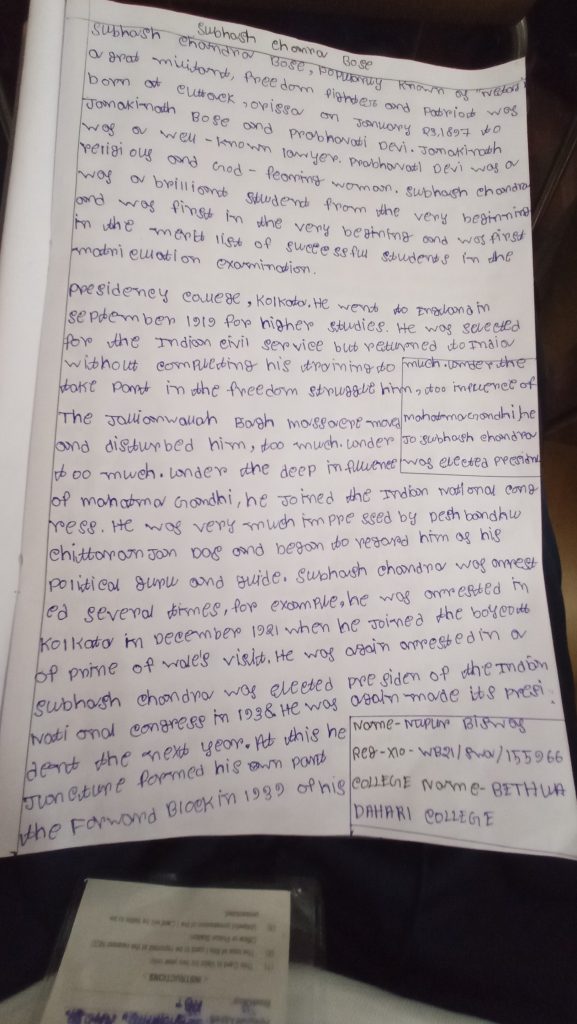 Subhash chanra Bose
Subhash Chandra Bose, popularly known as "Netaji"
a grat militant, freedom fighters and Patriot was
born at cuttack, orissa on January 23,1897 to
Janakinath Bose and Prabhavati Devi. Janakinath
was a well-known lawyer. Prabhavati Devi was a
religious and God-fearing woman. Subhash chandra
was a brilliant student from the very beginning
and was first in the very begining and was first
in the merit list of successful students in the
matriculation examination.
Presidency college, Kolkata. He went to England in
September 1919 for higher studies. He was selected
for the Indian civil service but returned to India
without completing his training to
take part in the freedom struggle
The Jallianwallah Bagh massacre moved
and disturbed him, too much. under
too much. under the deep influence
much. under the
him, too influence of
mahatma Gandhi, he
Jo Subhash chandra
was elected President
of mahatma Gandhi, he Joined the Indian National cong
ress. He was very much impre ssed by Desh bandhu
chittaranjan Das and began to regard him as his
Political guru and guide. Subhash chandra was arrest
ed several times, for example, he was arrested in
Kolkata in December 1921 when he Joined the boycott
of prine of wale's visit. He was again arrested in a
Subhash chandra was elected presiden of the Indian
Nati onal congress in 1938. He was again made its presi
dent the next year. At this he
Juncture formed his own part
the Forward Block in 1939 of his
Name- Nupur Biswas
Reg-No- WB21/SWA/155966
COLLEGE Name- BETHUA
DAHARI COLLEGE
INSTRUCTIONS